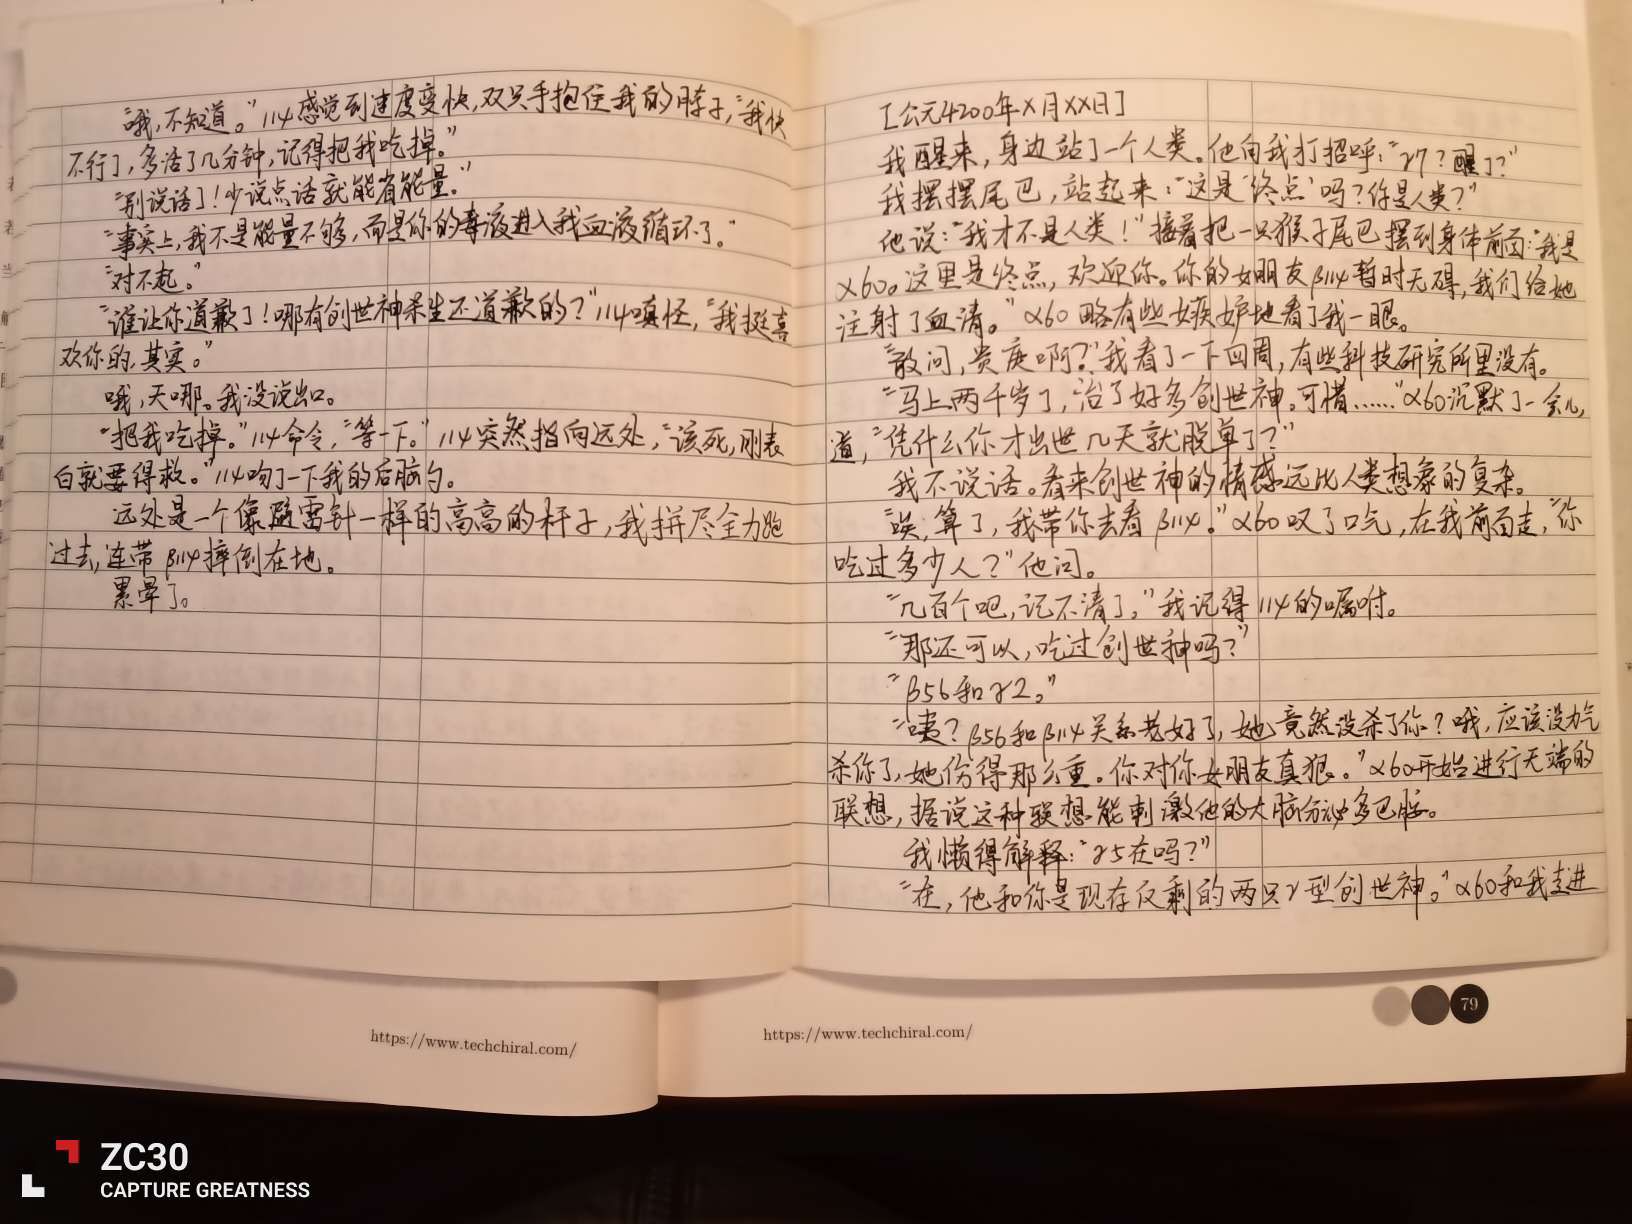 "哦,不知道。"114感觉到速度变快,双只手抱住我的脖子,"我快
不行了,多活了几分钟,记得把我吃掉。"
"别说话了!少说点话就能省能量。"
"事实上,我不是能量不够,而是你的毒液进入我血液循环了。"
"对不起。"
"谁让你道歉了!哪有创世神杀生还道歉的?"114嗔怪,"我挺喜
欢你的,其实。"
哦,天哪。我没说出口。
"把我吃掉。"114命令,"等一下。"114突然指向远处,"该死,刚表
白就要得救。"114吻了一下我的后脑勺。
远处是一个像避雷针一样的高高的杆子,我拼尽全力跑
过去,连带β114摔倒在地。
累晕了。
[公元4200年X月XX日]
我醒来,身边站了一个人类。他向我打招呼:"γ7?醒了?"
我摆摆尾巴,站起来:"这是'终点'吗?你是人类?"
他说:"我才不是人类!"接着把一只猴子尾巴摆到身体前面:"我是
α60。这里是终点,欢迎你。你的女朋友β114暂时无碍,我们给她
注射了血清。"α60略有些嫉妒地看了我一眼。
"敢问,贵庚啊?"我看了一下四周,有些科技研究所里没有。
"马上两千岁了,治了好多创世神。可惜……"α60沉默了一会儿,
道,"凭什么你才出世几天就脱单了?"
我不说话。看来创世神的情感远比人类想象的复杂。
"唉,算了,我带你去看β114。"α60叹了口气,在我前面走,"你
吃过多少人?"他问。
"几百个吧,记不清了。"我记得114的嘱咐。
"那还可以,吃过创世神吗?"
"β56和γ2。"
"咦?β56和β114关系老好了,她竟然没杀了你?哦,应该没力气
杀你了,她伤得那么重。你对你女朋友真狠。"α60开始进行无端的
联想,据说这种联想能刺激他的大脑分泌多巴胺。
我懒得解释:"γ5在吗?"
"在,他和你是现存仅剩的两只γ型创世神。"α60和我走进
79
https://www.techchiral.com/
https://www.techchiral.com/
ZC30
CAPTURE GREATNESS